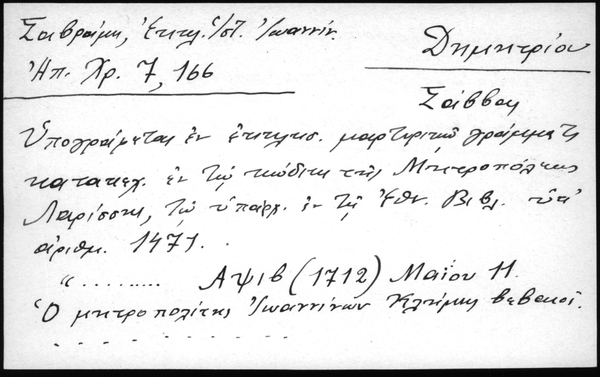 Σαβράμη, Ἐκκλ. Ἱστ. Ἰωαννίν.
Ἠπ. Χρ. 7, 166
Δημητρίου
Σάββας
Ὑπογράφεται ἐν ἐκκλησ. μαρτυρικῷ γράμματι
καταχ. ἐν τῷ κώδικι τῆς Μητροπόλεως
Λαρίσσης, τῷ ὑπάρχ. ἐν τῇ Ἐθν. Βιβλ. ὑπ'
ἀριθμ. 1471.
“......... Αψιβ (1712) Μαΐου 11.
Ὁ μητροπολίτης Ἰωαννίνων Κλήμης βεβαιοῖ.
. . . . . . . . . .